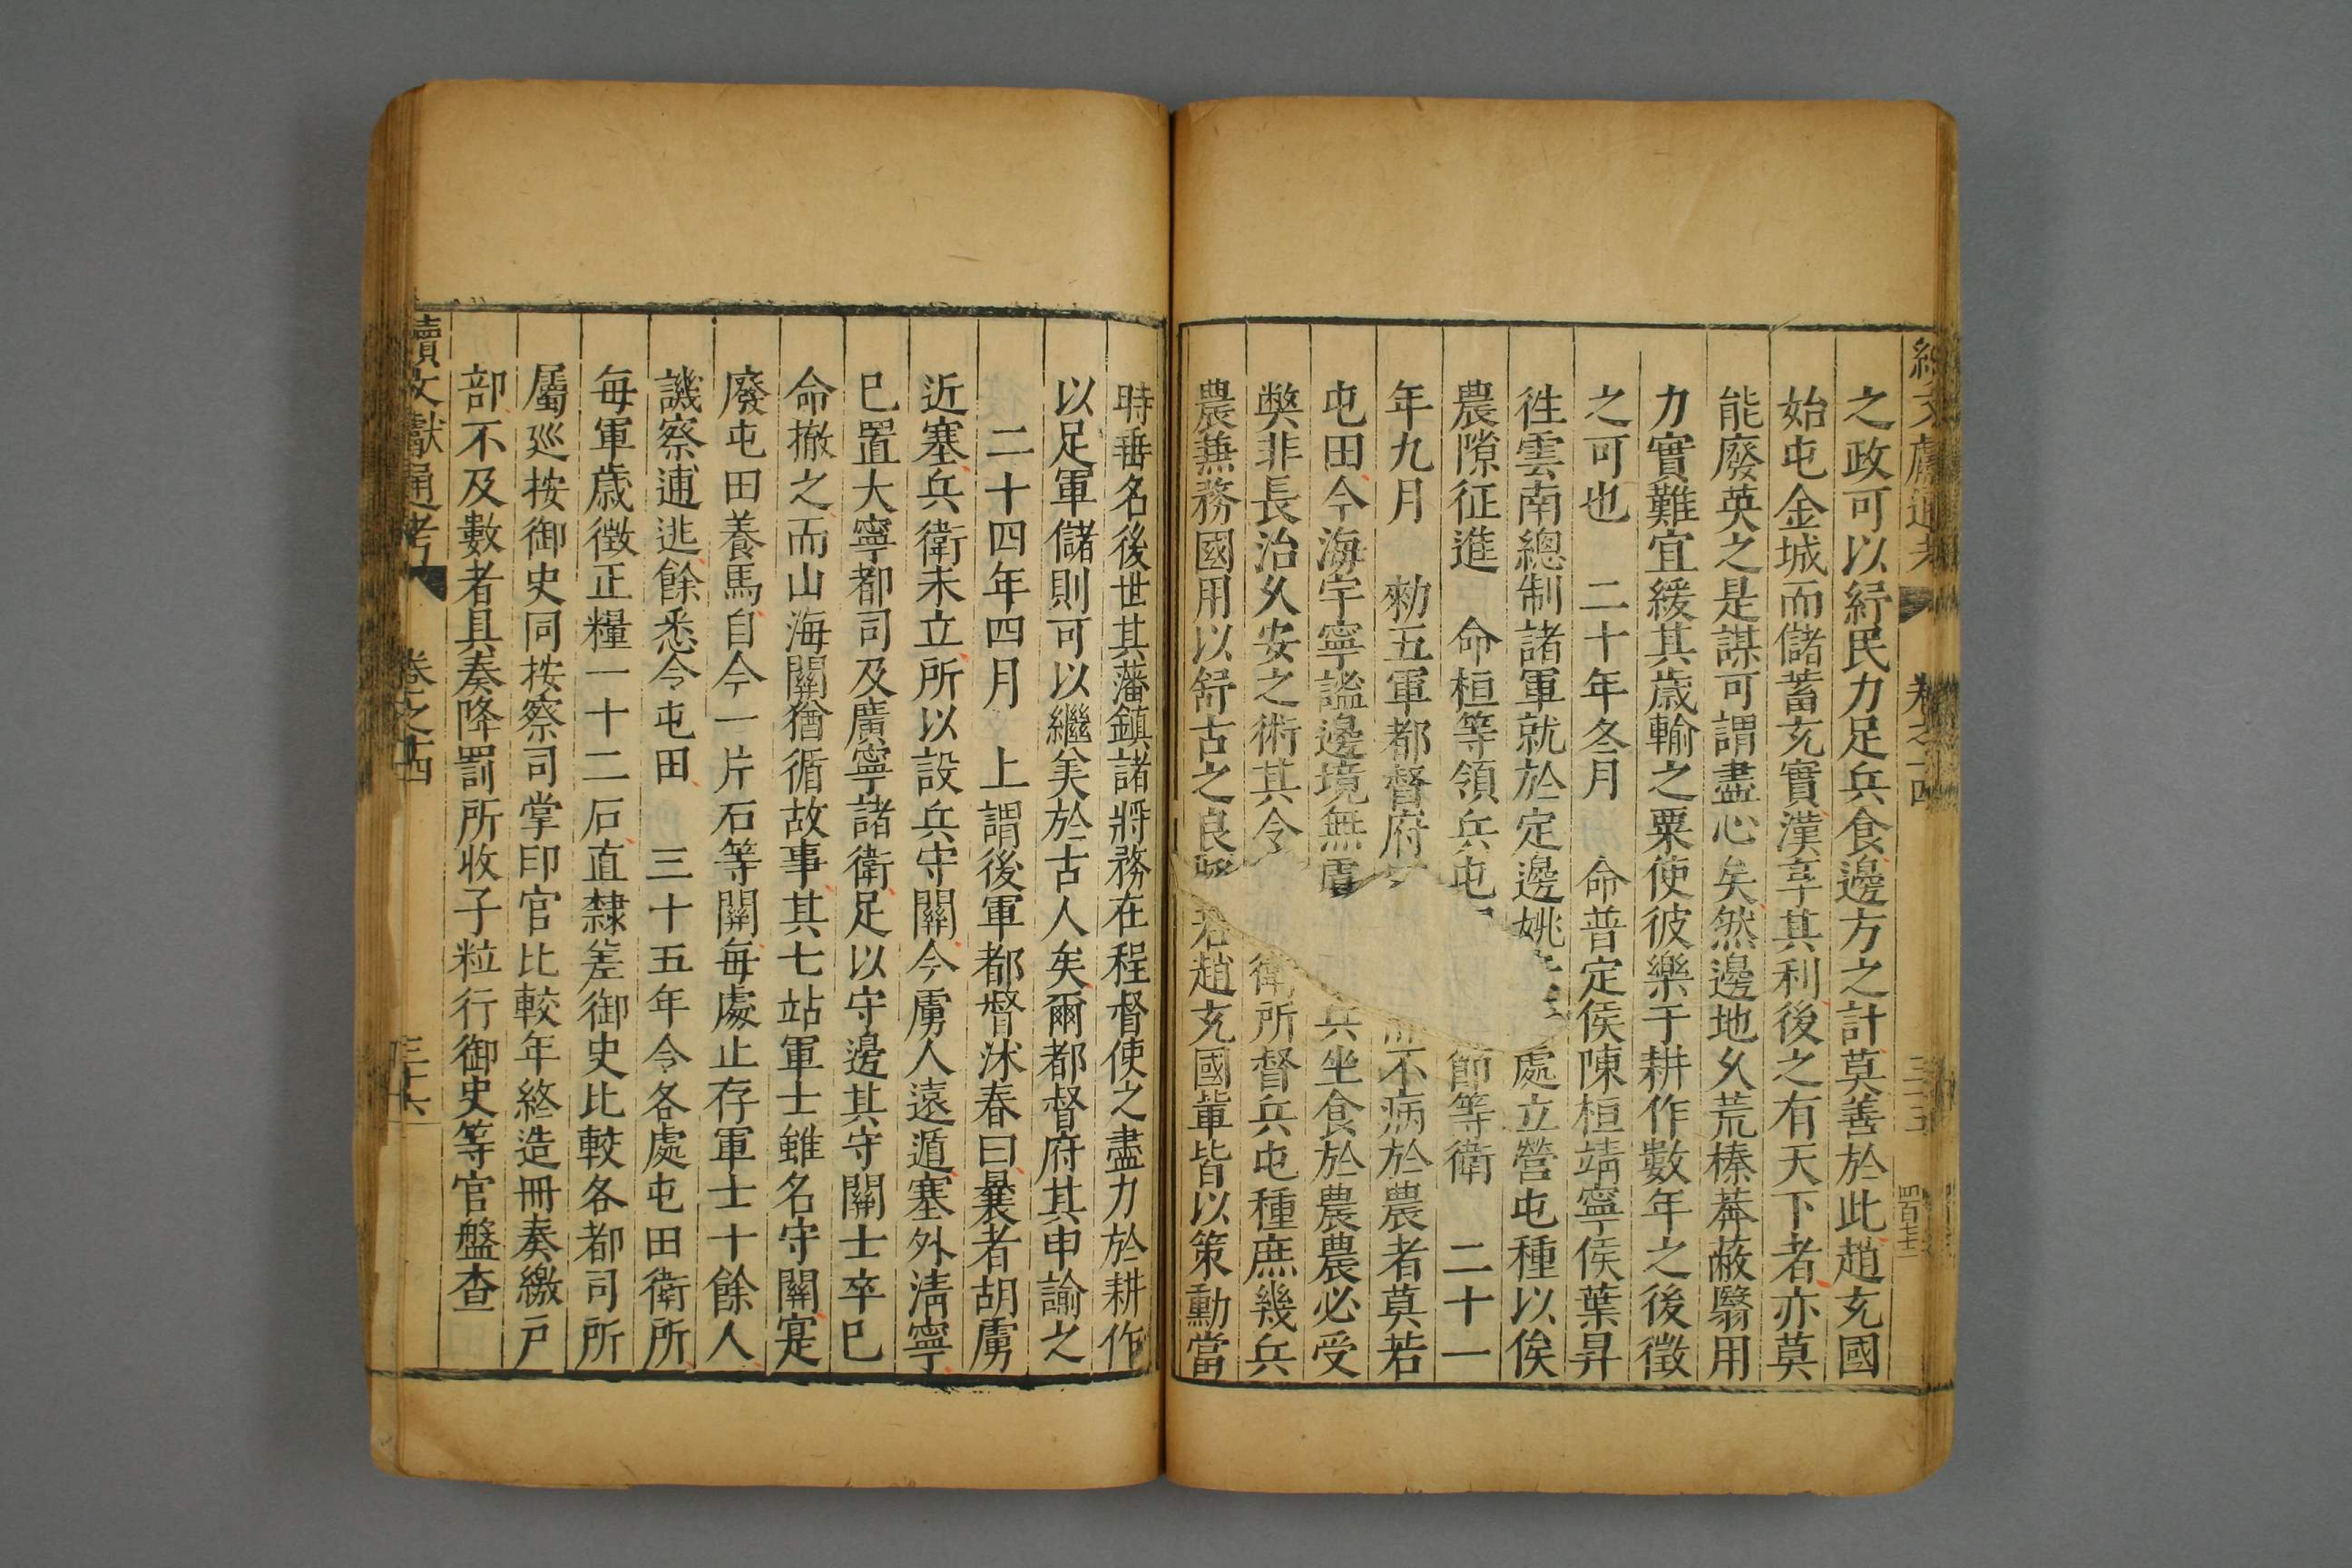 續文獻通考 卷之十四
之政可以紓民力足兵食邊方之計莫善於此趙充國
始屯金城而儲蓄充實漢享其利後之有天下者亦莫
能廢英之是謀可謂盡心矣然邊地久荒榛莽蔽翳用
力實難宜緩其歲輸之粟使彼樂于耕作數年之後徵
之可也 二十年冬月 命普定侯陳桓靖寧侯葉昇
徃雲南總制諸軍就於定邊姚處立營屯種以俟
農隙征進 命桓等領兵屯節等衛 二十一
年九月 勑五軍都督府不病於農者莫若
屯田今海宇寧謐邊境無虞兵坐食於農農必受
弊非長治久安之術其令衛所督兵屯種庶幾兵
農兼務國用以舒古之良趙充國輩皆以策勳當
時垂名後世其藩鎮諸將務在程督使之盡力於耕作
以足軍儲則可以繼羙於古人矣爾都督府其申諭之
二十四年四月 上謂後軍都督沭春曰曩者胡虜
近塞兵衛未立所以設兵守關今虜人遠遁塞外淸寧
已置大寧都司及廣寧諸衛足以守邊其守關士卒已
命撤之而山海關猶循故事其七站軍士雖名守關寔
廢屯田養馬自今一片石等關每處止存軍士十餘人
譏察逋逃餘悉令屯田 三十五年令各處屯田衛所
每軍歲徵正糧一十二石直隸差御史比較各都司所
屬廵按御史同按察司掌印官比較年終造冊奏繳戶
部不及數者具奏降罰所收子粒行御史等官盤查
續文獻通考 卷之十四 三十六